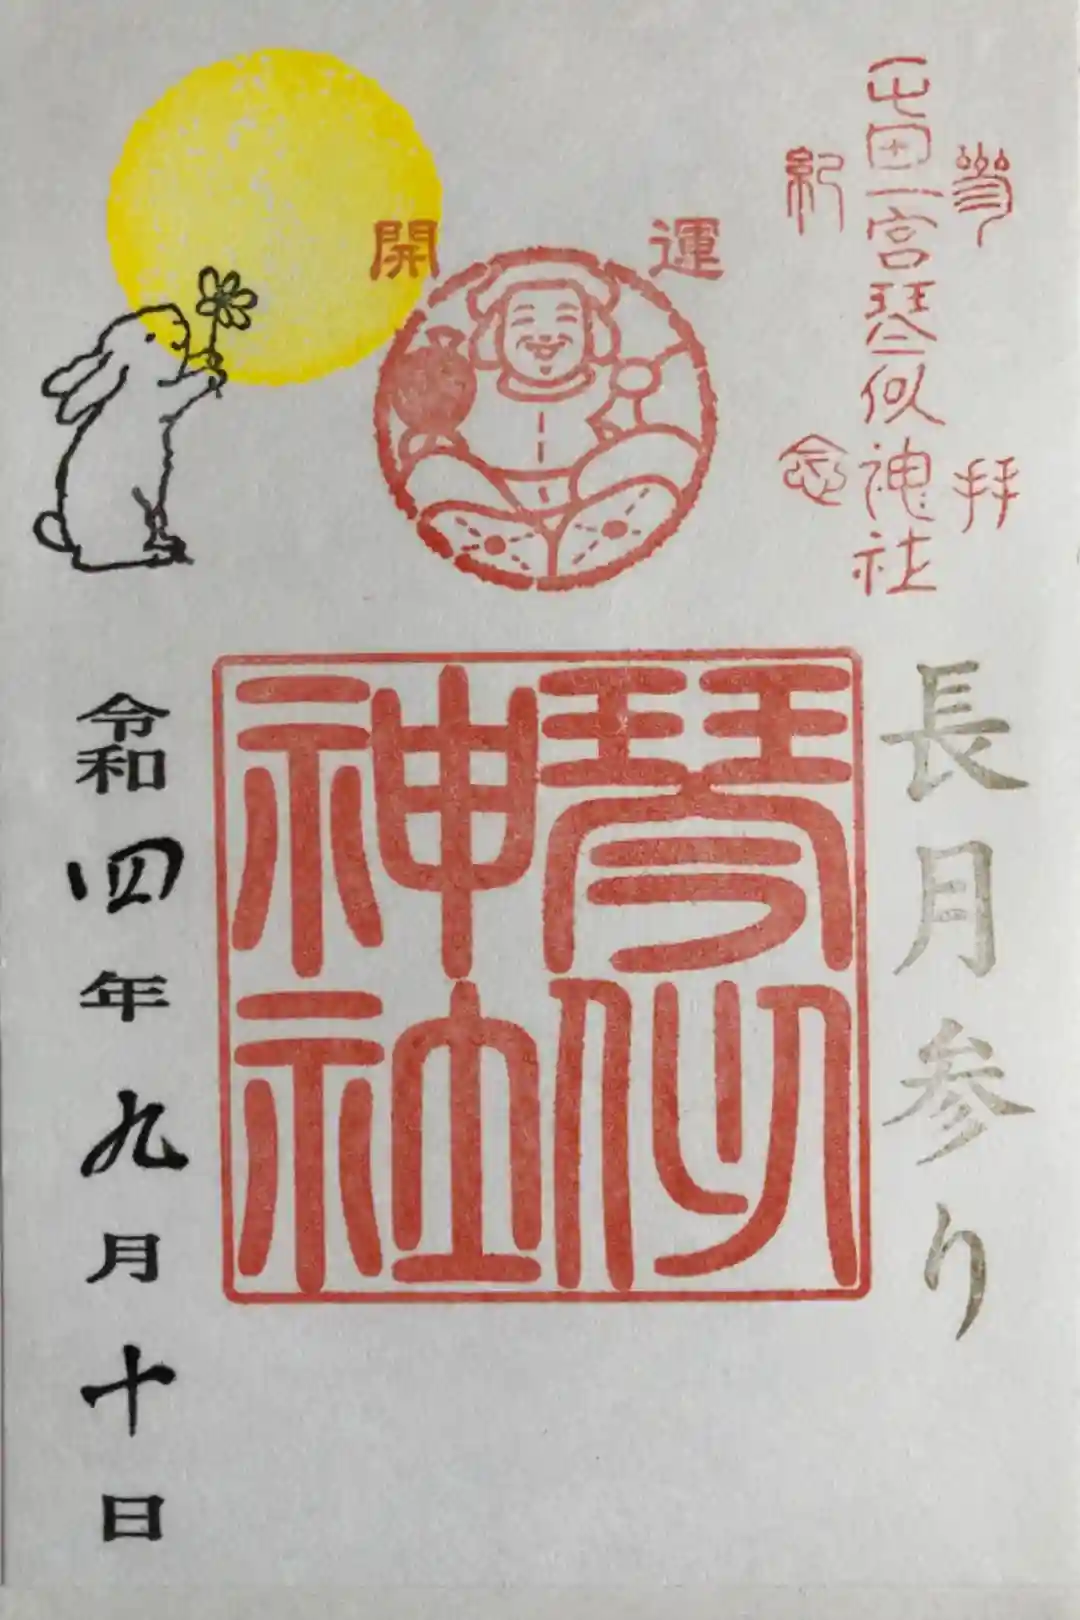 参拝
屯田一宮琴似神社
紀念
開運
長月参り
琴似
神社
令和四年九月十日